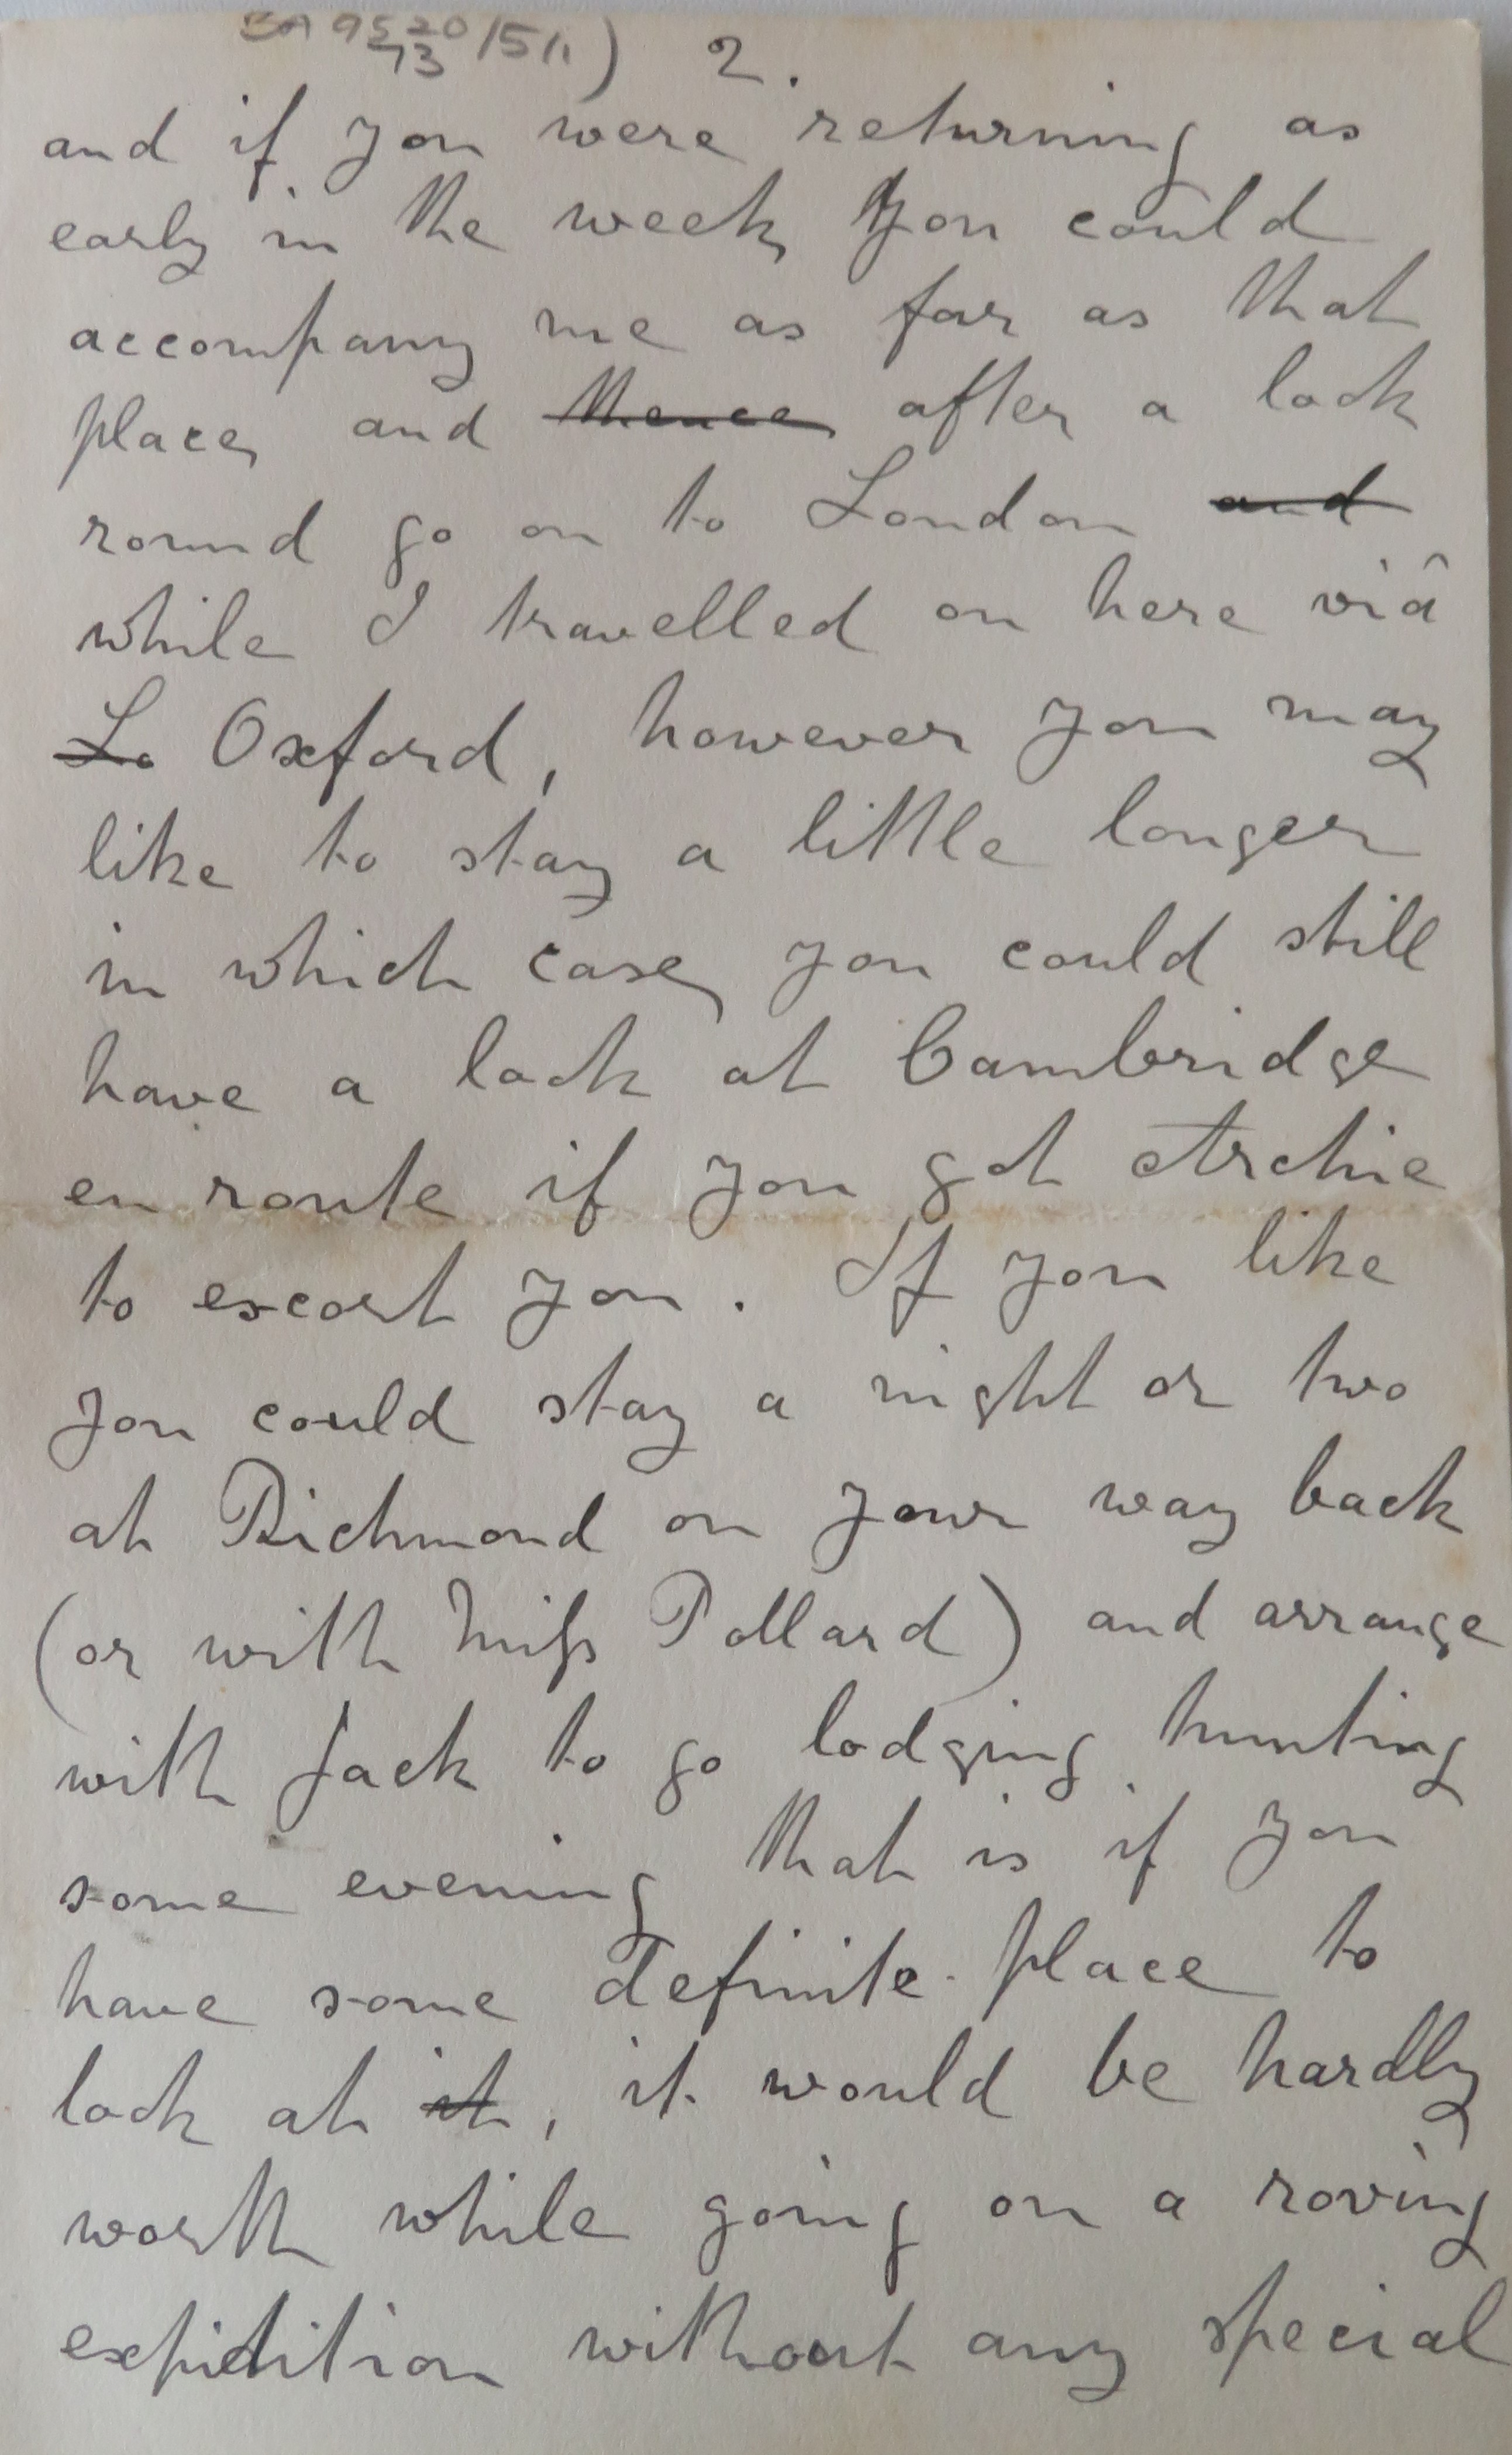 BA 9520/5/1)
73
2.
and if you were returning as
early in the week, you could
accompany me as far as that
place, and thence after a look
round go on to London and
while I travelled on here viâ
Lo Oxford, however you may
like to stay a little longer
in which case, you could still
have a look at Cambridge
en route if you got Archie
to escort you. If you like
you could stay a night or two
at Richmond on your way back
(or with Miss Pollard) and arrange
with Jack to go lodging hunting
some evening that is if you
have some definite place to
look at it, it would be hardly
worth while going on a roving
expidition without any special